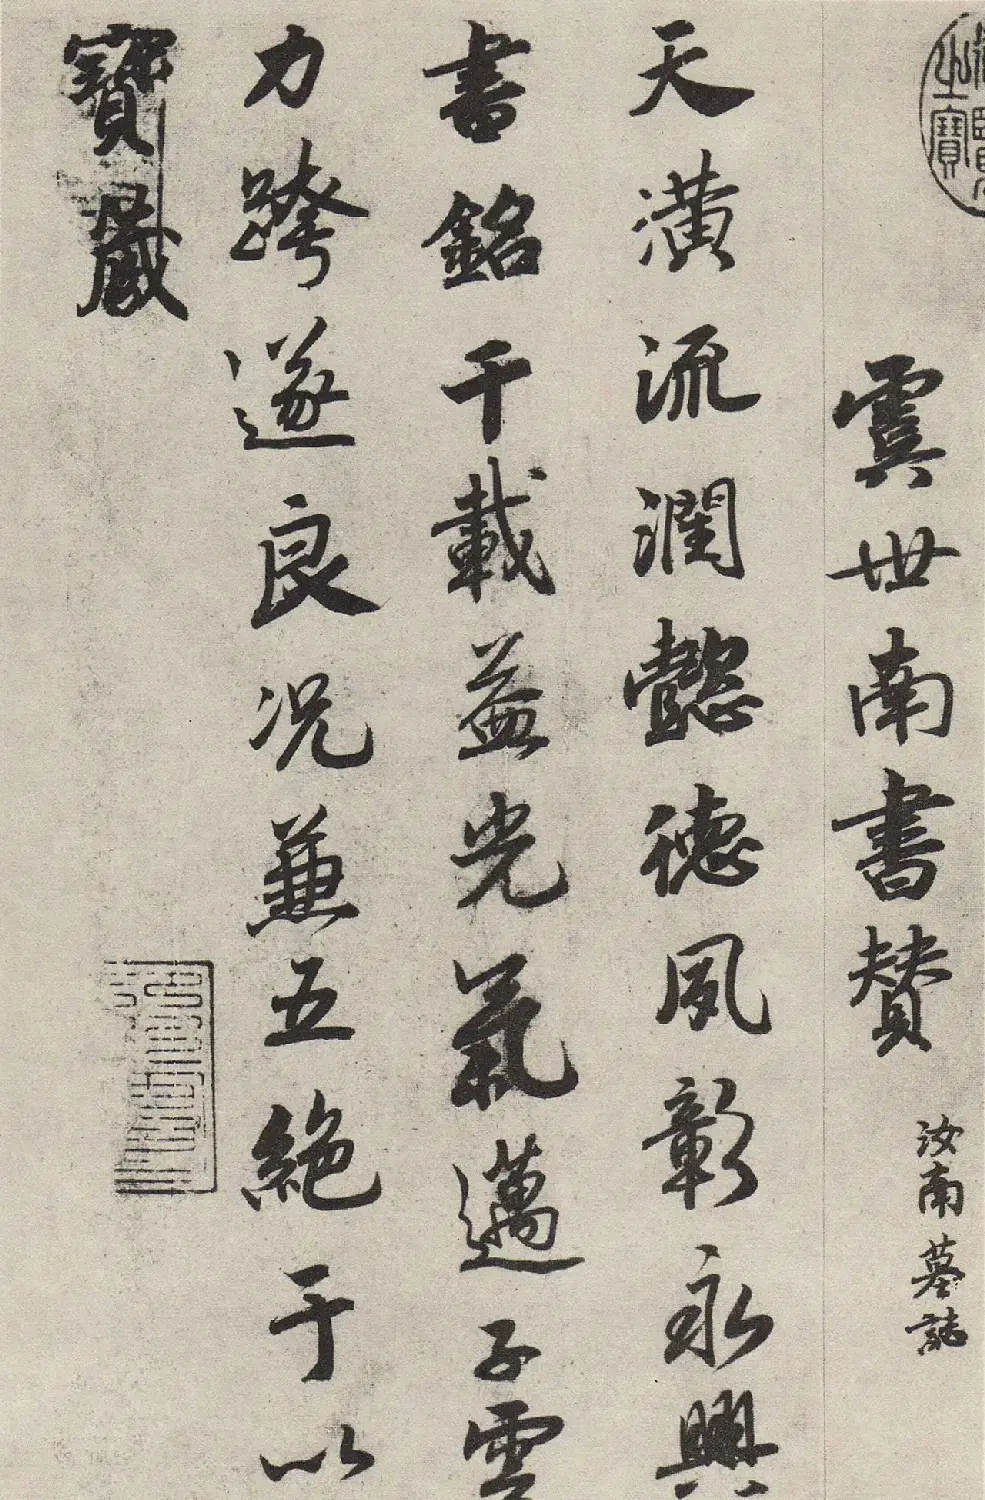 虞世南書贊 汝南墓誌
天潢流潤懿德夙彰永興
書銘千載益光氣邁子雲
力跨遂良況兼五絕于以
寶藏